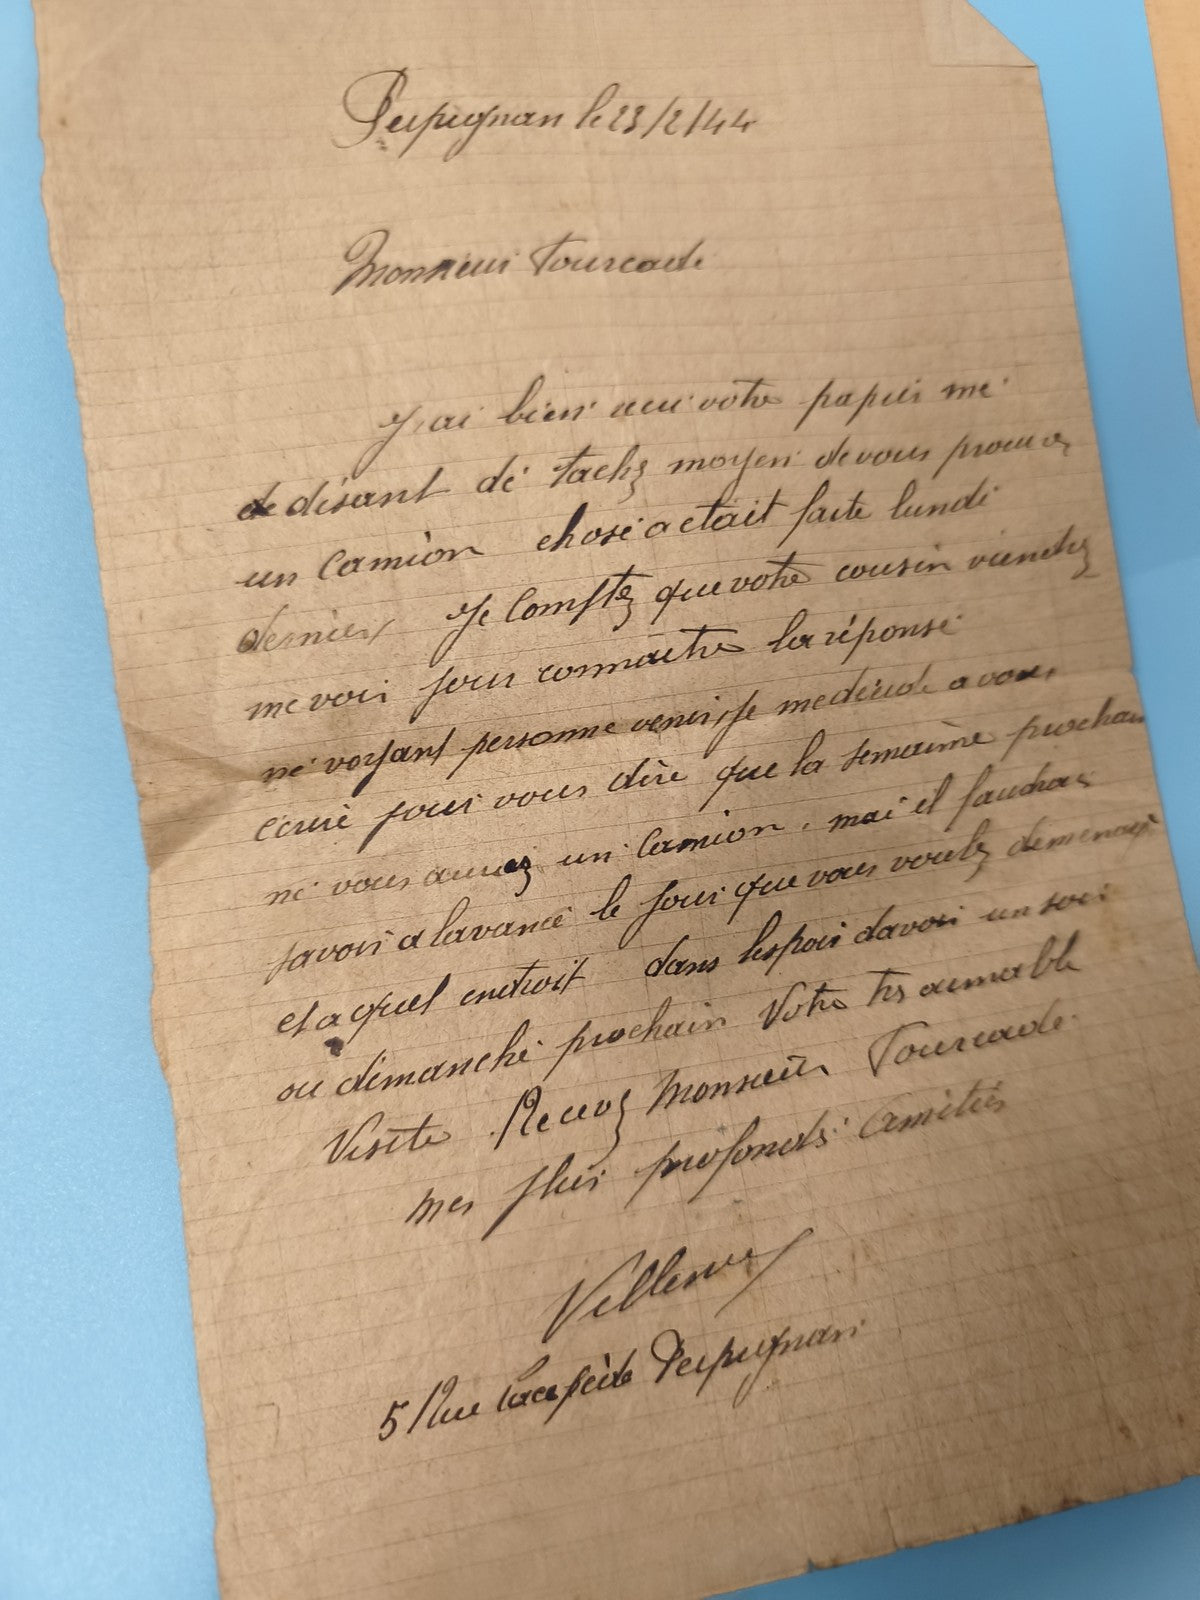 Perpignan le 23/2/44
Monsieur Fourcade
J,ai bien reçu votre papier me
disant dé tachez moyen de vous procurez
un camion chose a etait faite lundi
dernier, Je Comptez que votre cousin viendrez
me voir pour connaitre la réponse
ne voyant personne venir, je me décide a vous
écrire pour vous dire que la semaine prochain
ne vous aurrez un camion. mai il faudrai
savoir a lavance le jour que vous voulez
et a quel endroit dans lespoir davoir un soir
ou dimanche prochain Votre tres aimable
Visite Recevez Monsieur Fourcade
mes plus profonds amitiés
5 Rue Lacepède Perpignan